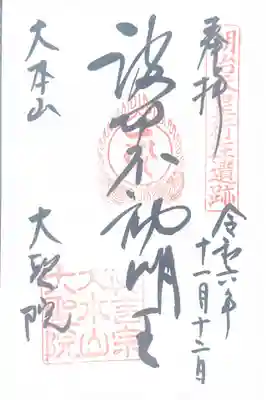 奉拝
明治天皇行在遺跡
令和六年
十一月十二日
波切不動明王
大本山
大聖院
真言宗
大本山
大聖院